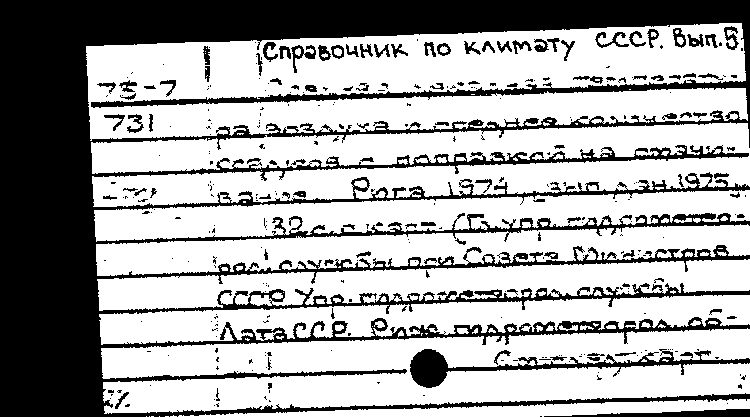 Справочник по климату СССР. Вып.5.
75-7 Средняя месячная температу-
731 ра воздуха и среднее количество
осадков с поправкой на смачи-
вания. Рига 1974, вып. дан. 1975.
32 с. с карт. (Гл. упр. гидрометео-
рол. службы при Совете Министров
СССР. Упр. гидрометеорол. службы
Латв ССР. Риж. гидрометеорол. об-
См. след. карт.